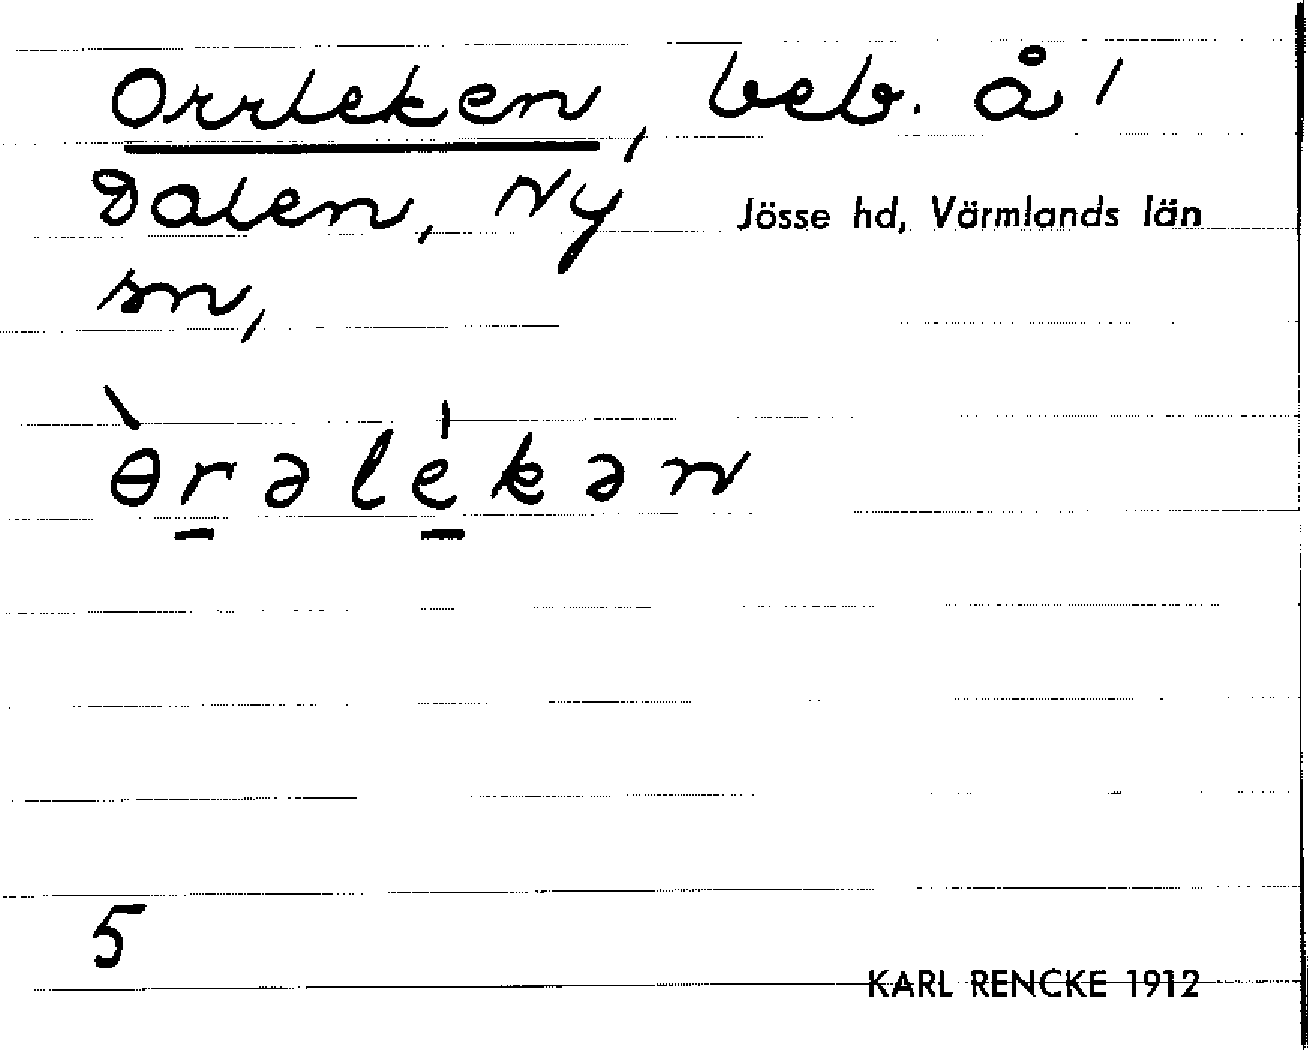 Orrleken, beb. å 1
Dalen, Ny Jösse hd, Värmlands län
sn,
ɵ̀rəlékən
5
KARL RENCKE 1912